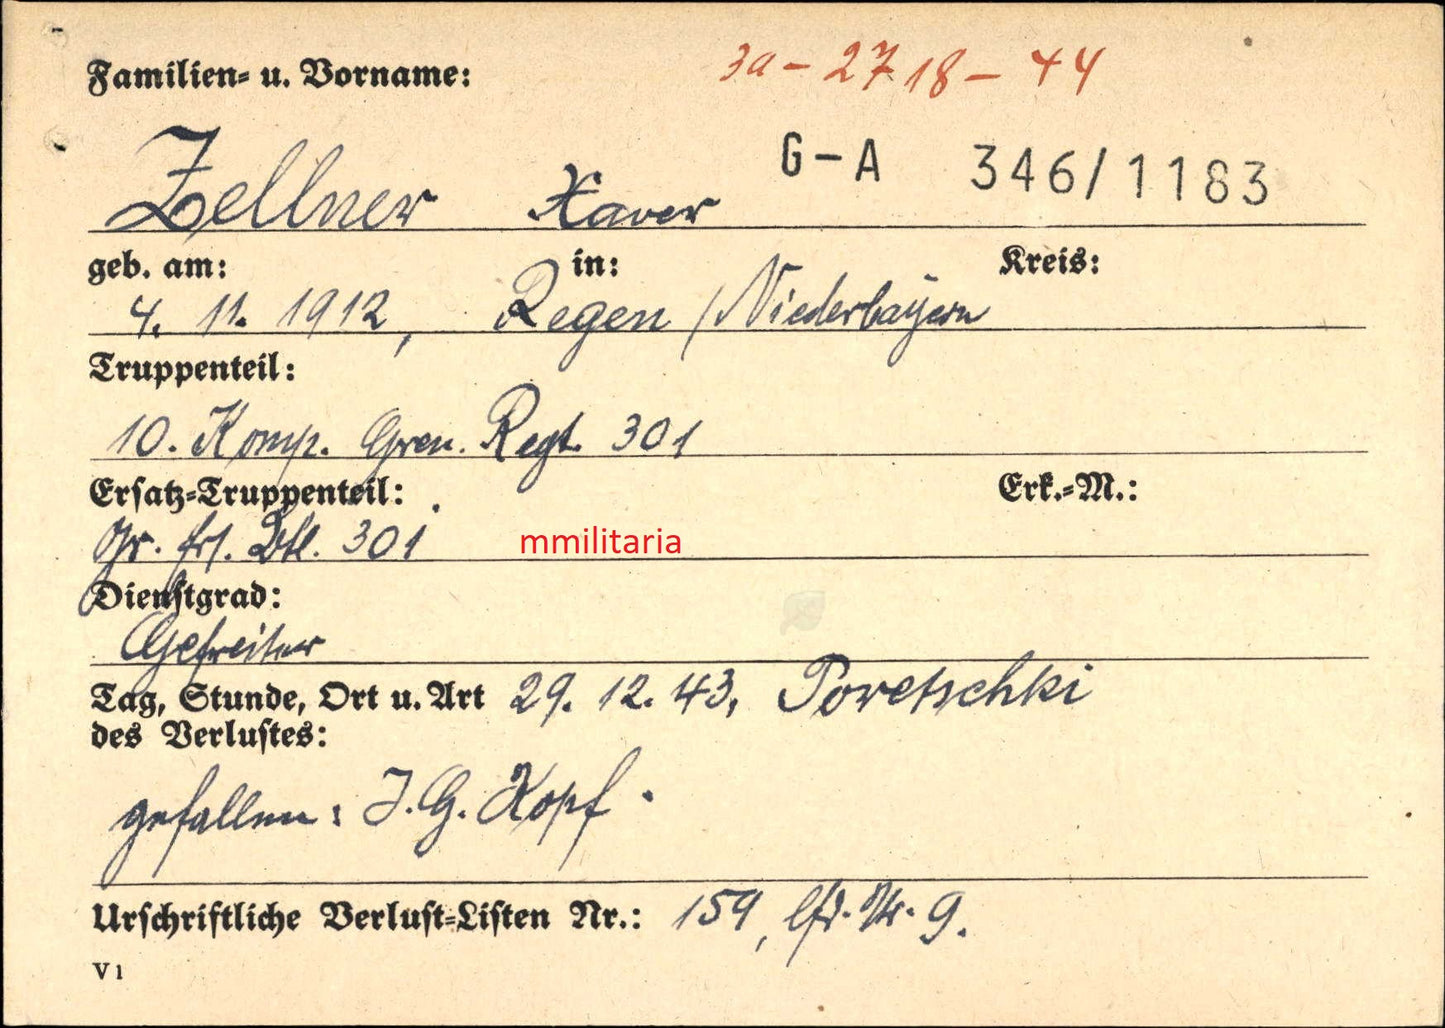 Familien- u. Vorname:
3a - 2718 - 44
G-A 346/1183
Zellner Xaver
geb. am: in: Kreis:
4. 11. 1912, Regen / Niederbayern
Truppenteil:
10. Komp. Gren. Regt. 301
Ersatz-Truppenteil: Erk.-M.:
Gr. Ers. Btl. 301
mmilitaria
Dienstgrad:
Gefreiter
Tag, Stunde, Ort u. Art 29. 12. 43, Poretschki
des Verlustes:
gefallen: I. G. Kopf.
Urschriftliche Verlust-Listen Nr.: 159, lfd. Nr. 9.
V 1